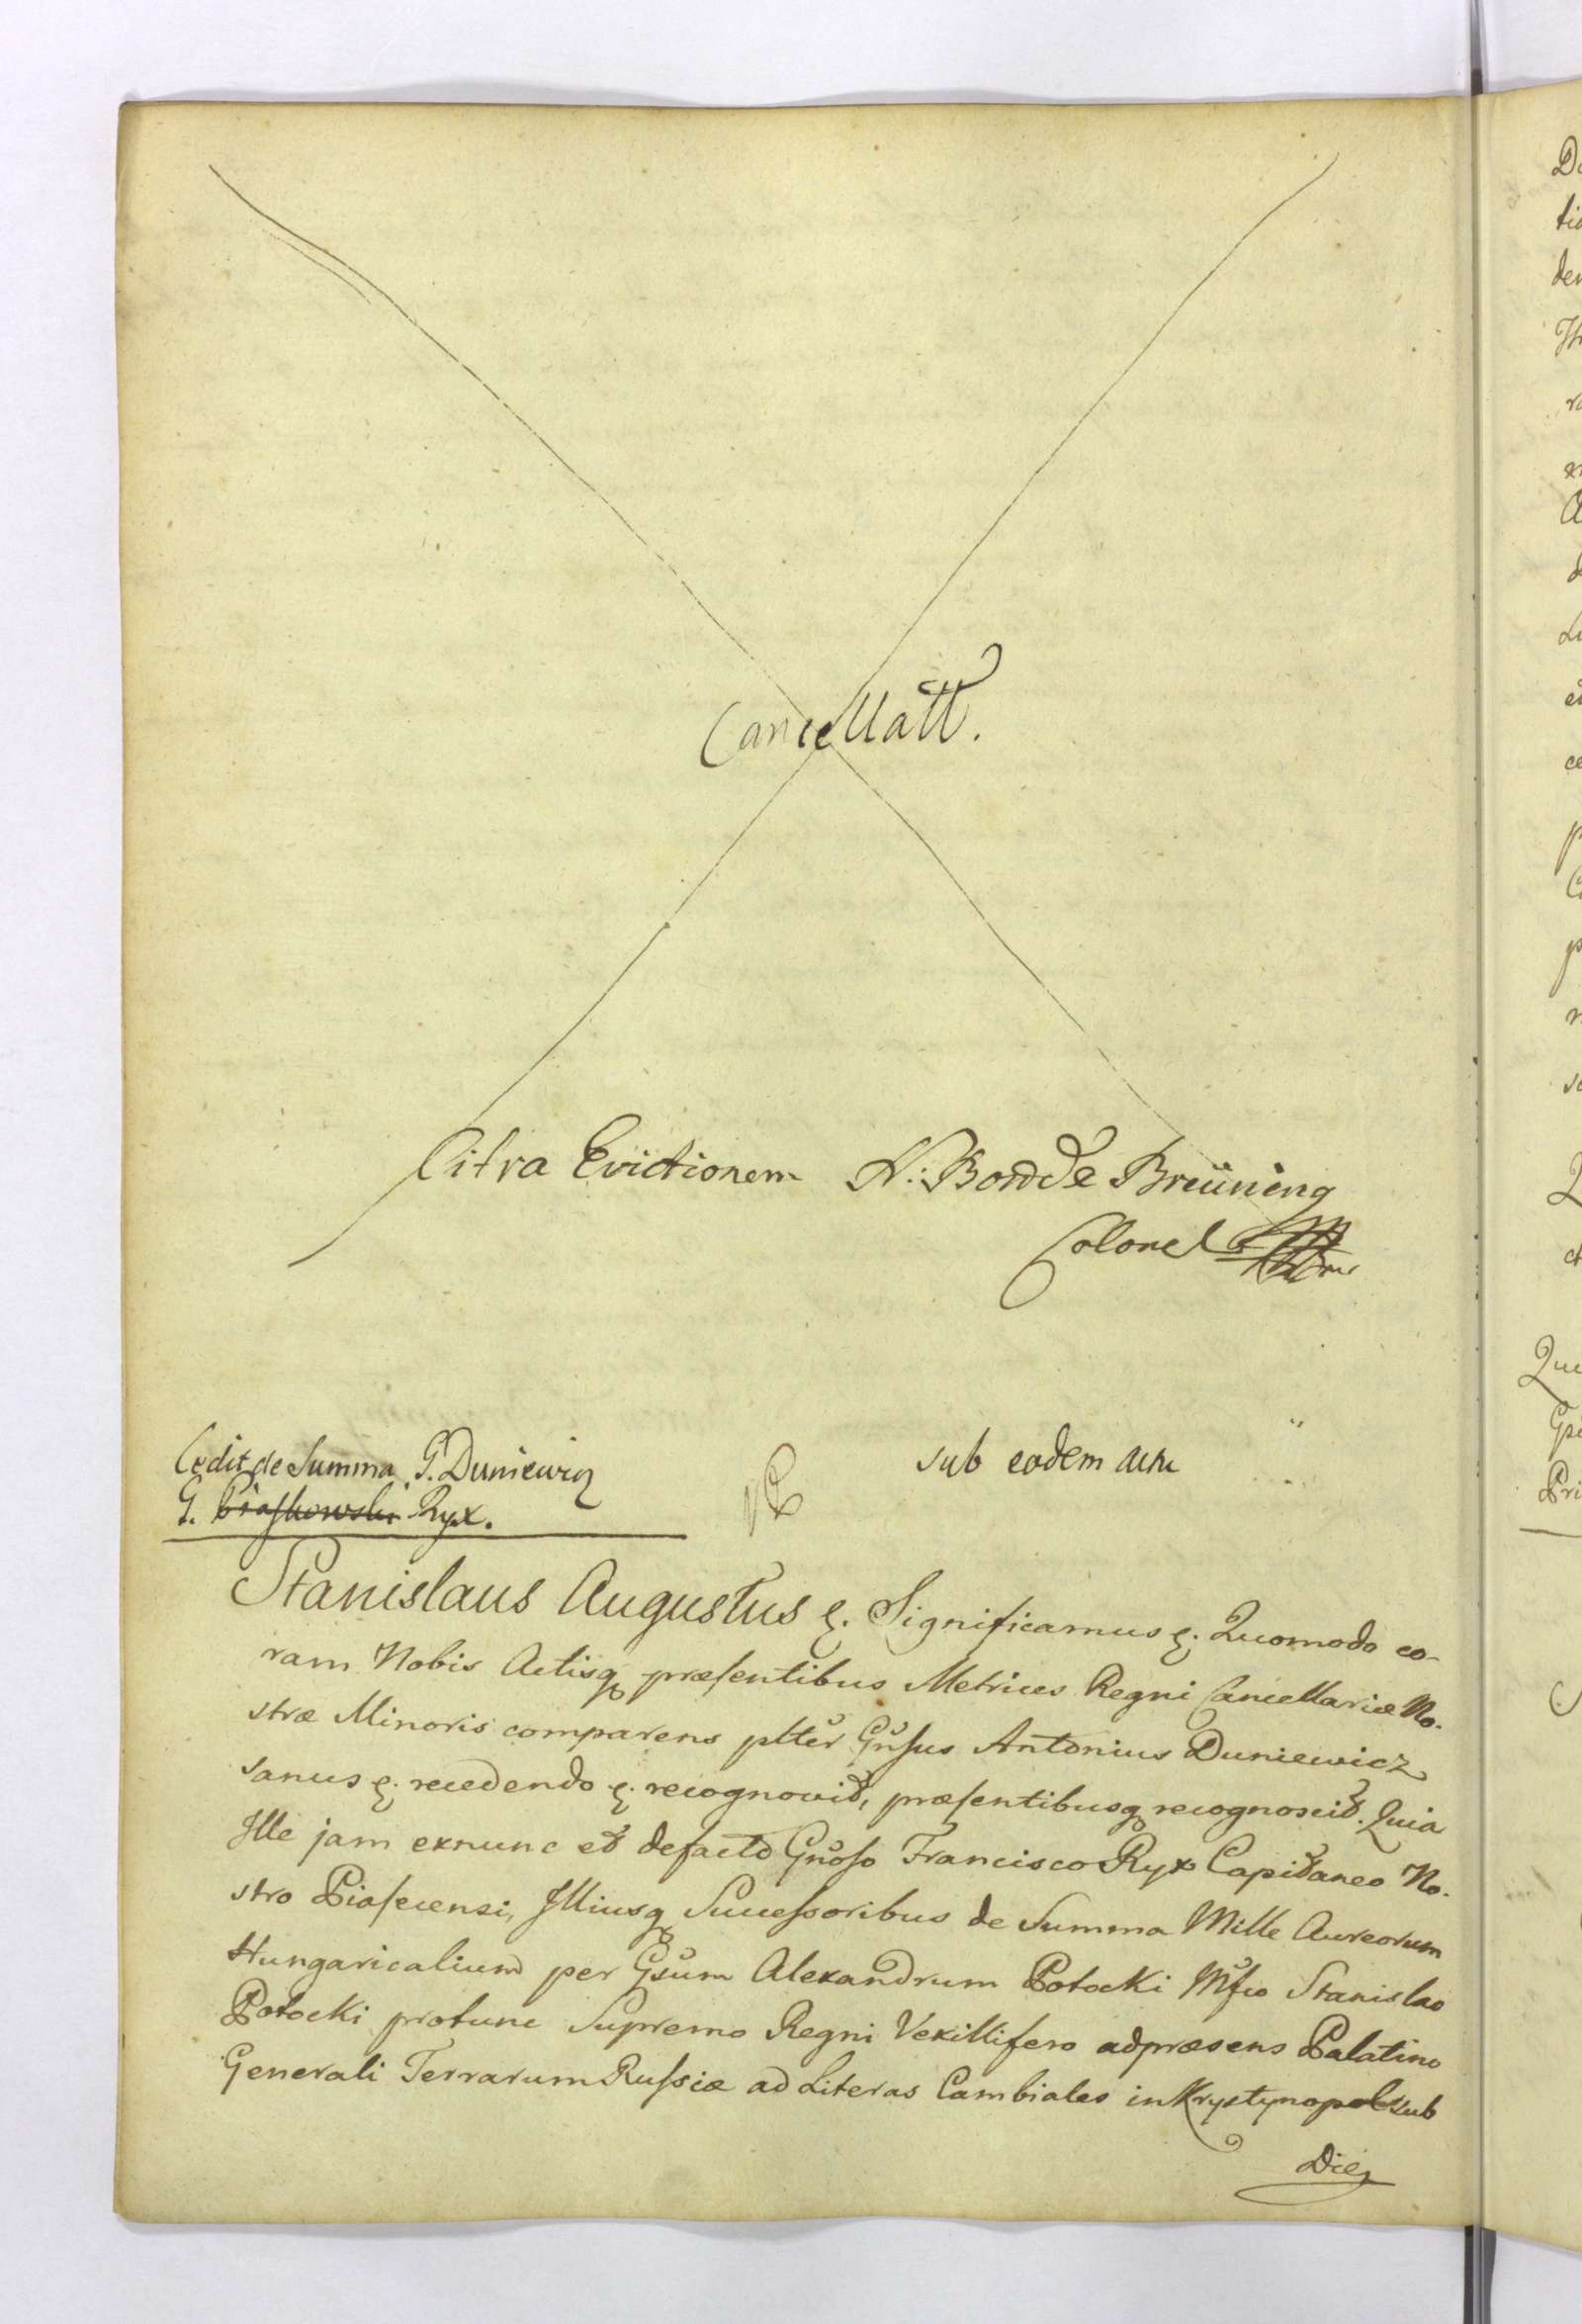 Cancellatt.
Citra Evictionem N: Bon de Breüning
Colonel
Cedit de Summa G. Duniewicz
G. Piaskowski Ryx.
sub eodem actu
Stanislaus Augustus &. Significamus &. Quomodo co-
ram Nobis Actisq præsentibus Metrices Regni Cancellariæ No-
stræ Minoris comparens plter Gnsus Antonius Duniewicz
sanus &. recedendo &. recognovit, præsentibusq recognoscit. Quia
Ille jam exnunc et defacto Gnoso Francisco Ryx Capitaneo No-
stro Piasecensi, Illiusq Successoribus de Summa Mille Aureorum
Hungaricalium per Gsum Alexandrum Potocki Mfco Stanislao
Potocki protunc Supremo Regni Vexillifero adpræsens Palatino
Generali Terrarum Russiæ ad Literas Cambiales in Krystynopol sub
Die